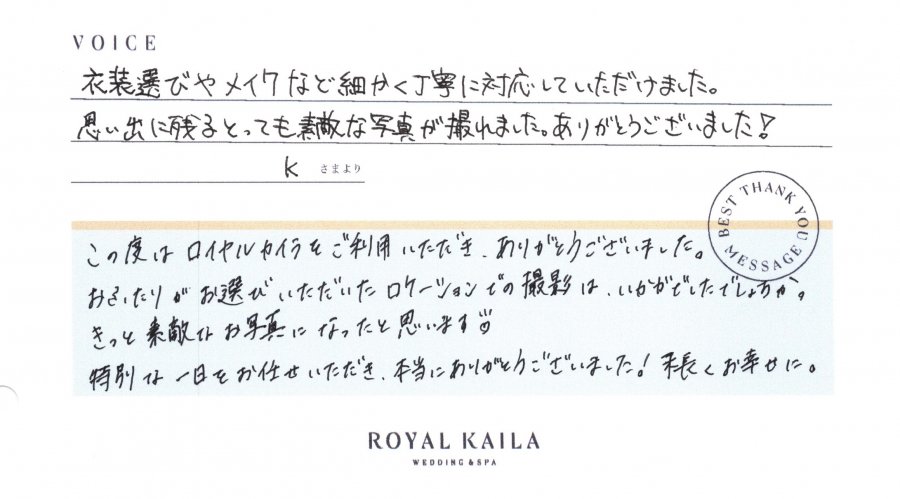 VOICE
衣装選びやメイクなど細かく丁寧に対応していただけました。
思い出に残るとっても素敵な写真が撮れました。ありがとうございました!
K さまより
BEST THANK YOU MESSAGE
この度はロイヤルカイラをご利用いただき、ありがとうございました。
おふたりがお選びいただいたロケーションでの撮影は、いかがでしたでしょうか。
きっと素敵なお写真になったと思います
特別な一日をお任せいただき、本当にありがとうございました!末長くお幸せに。
ROYAL KAILA
WEDDING & SPA